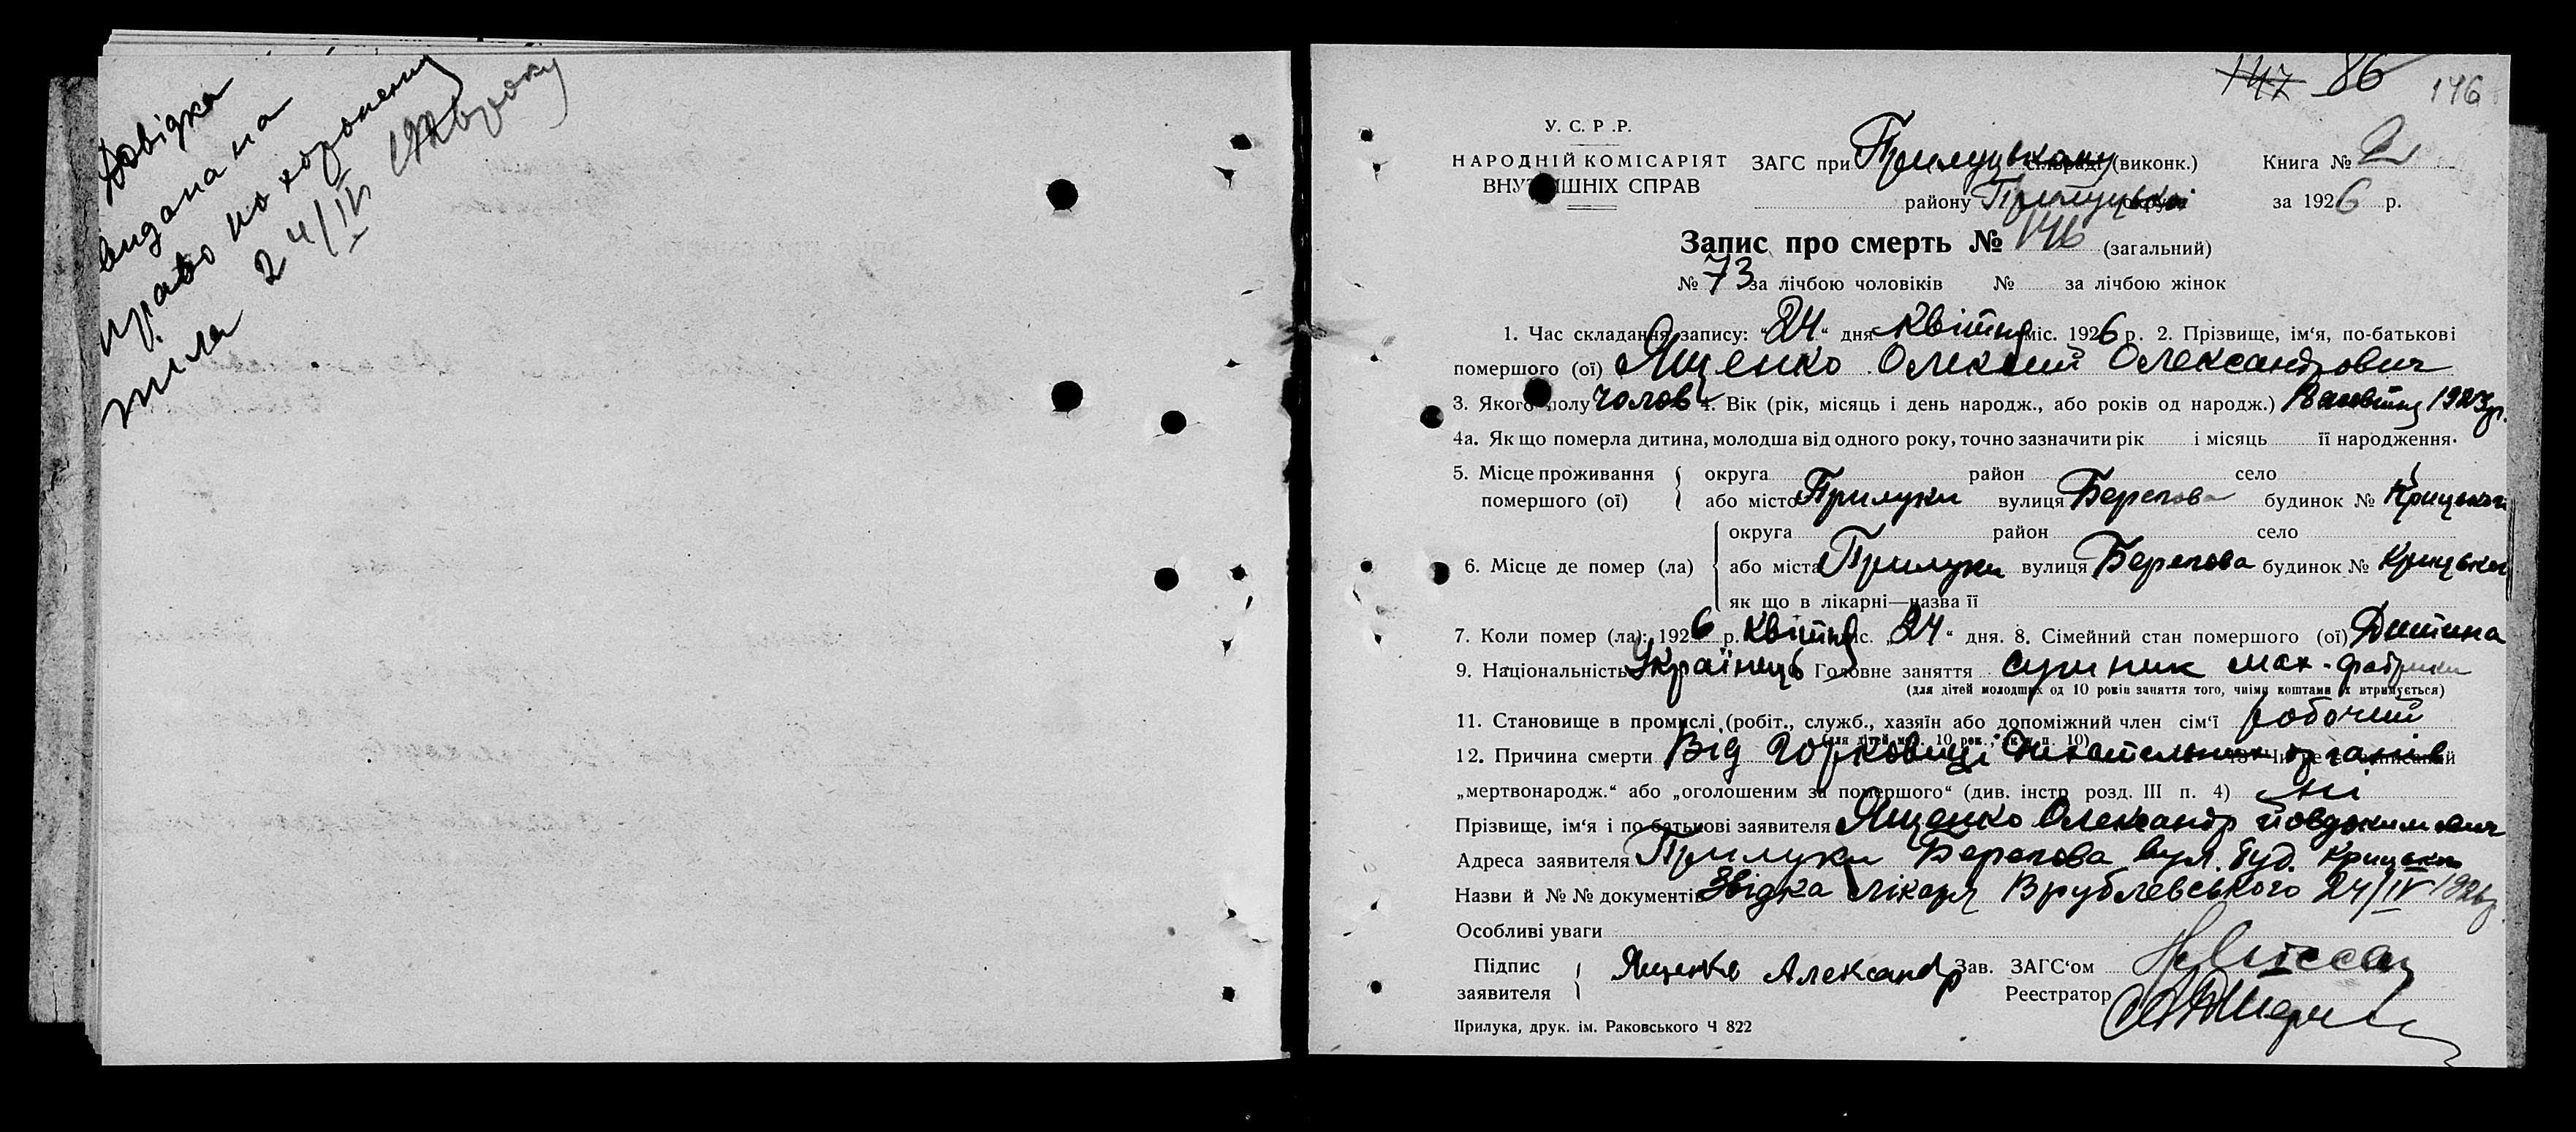 Довідка
видана на
право на хоронення
тіла 24/IV
147 86 146
У. С. Р .Р.
НАРОДНІЙ КОМІСАРІЯТ ЗАГС при Прилуцькому (виконк.) Книга № 2
ВНУТРІШНІХ СПРАВ
району Прилуцької за 1926 р.
Запис про смерть № 146 (загальний)
№ 73 за лічбою чоловіків № за лічбою жінок
1. Час складання запису: "24" дня квітня міс. 1926 р. 2. Прізвище, ім'я, по-батькові
помершого (ої) Ященко Олексій Олександрович
3. Якого полу чолов 4. Вік (рік, місяць і день народж., або років од народж.) 1923 р.
4а. Як що померла дитина, молодша від одного року, точно зазначити рік і місяць її народження.
5. Місце проживання округа район село
помершого (ої) або місто Прилуки вулиця Берегова будинок № Крицької
округа район село
6. Місце де помер (ла) або міста Прилуки вулиця Берегова будинок № Крицької
як що в лікарні—назва її
7. Коли помер (ла): 1926 р. квітня міс. „24“ дня. 8. Сімейний стан помершого (ої) Дитина
9. Національність Українець Головне заняття мах. фабрики
(для дітей молодших од 10 років заняття того, чиїми коштами їх втримується)
11. Становище в промислі (робіт., служб., хазяїн або допоміжний член сім'ї робочий
12. Причина смерти Від органів
„мертвонародж.“ або „оголошеним за помершого“ (див. інстр розд. III п. 4) ні
Прізвище, ім'я і по батькові заявителя Ященко Олександр Йовдокимович
Адреса заявителя Прилуки Берегова вул. буд. Крицької
Назви й №№ документів Звідка лікаря Врублевського 24/IV 1926 р.
Особливі уваги
Підпис
заявителя Ященко Александр Зав. ЗАГС'ом
Реестратор
Прилука, друк. ім. Раковського Ч 822